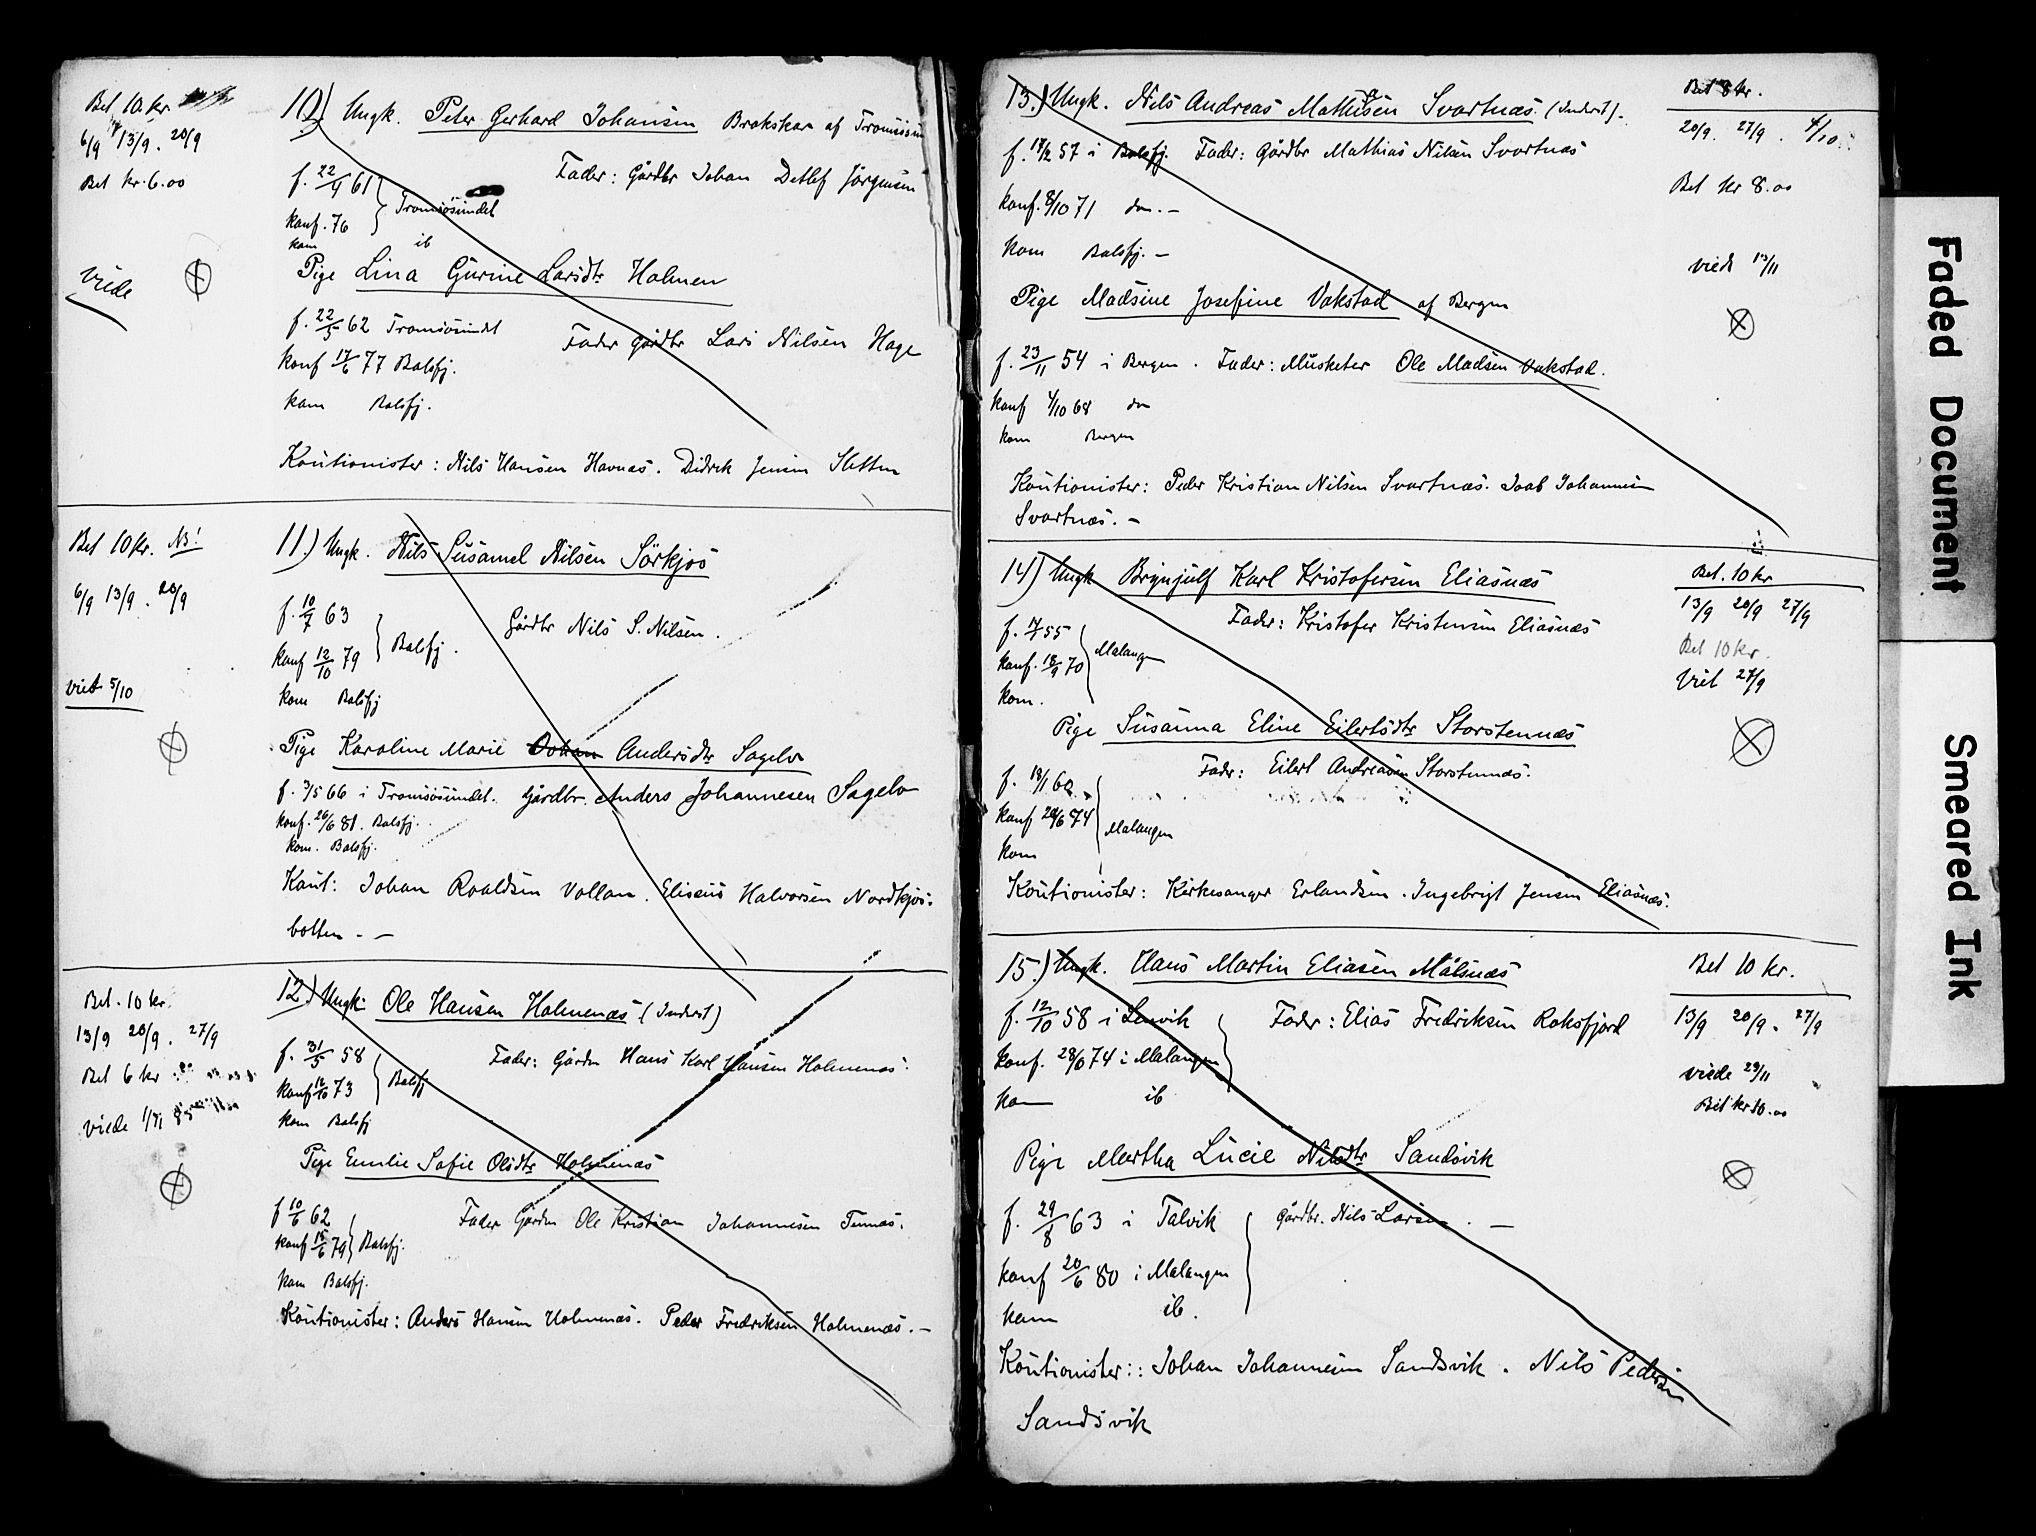 Bet 10. kr
6/9 13/9. 20/9
Bet kr. 6.00
viede
10) Ungk. Peter Gerhard Johansen Brokskar af Tromsösun
f. 22/4 61 Fader: Gårdbr Johan Detlef Jörgensen
konf. 76 Tromsösundet
kom ib
Pige Lina Gurine Larsdtr Holmen
f. 22/5 62 Tromsösundet Fader Gårdbr Lars Nilsen Hage
konf 17/6 77 Balsfj.
kom Balsfj.
Kautionister: Nils Hansen Havnæs. Didrik Jensen Sletten
Bet 10 kr. NB!
6/9 13/9. 20/9
viet 5/10
11.) Ungk. Nils Susamel Nilsen Sörkjos
f. 10/7 63 Gårdbr Nils S. Nilsen.
konf 12/10 79 Balsfj.
kom Balsfj
Pige Karoline Marie Andersdtr Sagelv
f. 3/5 66 i Tromsösundet. Gårdbr. Anders Johannesen Sagelv
konf. 26/6 81. Balsfj.
kom. Balsfj.
Kaut: Johan Roaldsen Vollan. Eliseus Halvorsen Nordkjos-
botten. –
Bet. 10 kr.
13/9 20/9. 27/9
Bet 6 kr
viede 1/11 85
12.) Ungk: Ole Hansen Holmenæs (Inderst)
f. 31/5 58 Fader: Gårdm Hans Karl Hansen Holmenæs.
konf 12/10 73 Balsfj
kom Balsfj
Pige Emilie Sofie Olsdtr Holmenæs
f 10/6 62 Fader Gårdm Ole Kristian Johannesen Tennæs.
konf 15/6 79 Balsfj.
kom Balsfj.
Kautionister: Anders Hansen Holmenæs. Peder Fredriksen Holmenæs. –
13.) Ungk. Nils Andreas Mathisen Svartnæs. (Inderst).
Bet 8 kr.
20/9. 27/9. 4/10
f. 17/2 57 i Balsfj. Fader: Gårdbr Mathias Nilsen Svartnæs
Bet kr 8.00
konf. 8/10 71 do. –
kom Balsfj. –
viede 13/11
Pige Madsine Josefine Vakstad af Bergen
f. 23/11 54 i Bergen. Fader: Musketer Ole Madsen Vakstad.
konf 4/10 68 do
kom Bergen
Kautionister: Peder Kristian Nilsen Svartnæs. Joab Johannesen
Svartnæs. –
14) Ungk Brynjulf Karl Kristofersen Eliasnæs
Bet. 10 kr
13/9 20/9 27/9
f. 7/7 55 Fader: Kristofer Kristensen Eliasnæs
Bet 10 kr.
konf. 18/9 70 Malangen
Viet 27/9
kom.
Pige Susanna Eline Eilertsdtr Storstennæs
f. 18/1 60. Fader: Eilert Andreasen Storstennæs.
konf 28/6 74 Malangen
kom
Kautionister: Kirkesanger Erlandsen. Ingebrigt Jensen Eliasnæs.
15.) Ungk. Hans Martin Eliasen Målsnæs
Bet 10 kr.
f. 12/10 58 i Lenvik Fader: Elias Fredriksen Roksfjord
13/9 20/9. 27/9
konf. 28/6 74 i Malangen
viede 29/11
Bet kr 10.00
kom ib
Pige Martha Lucie Nilsdtr Sandsvik
f. 29/8 63 i Talvik Gårdbr. Nils Larsen. –
konf 20/6 80 i Malangen
kom ib.
Kautionister:: Johan Johannesen Sandsvik. Nils Pedersen
Sandsvik
Faded Document
Smeared Ink